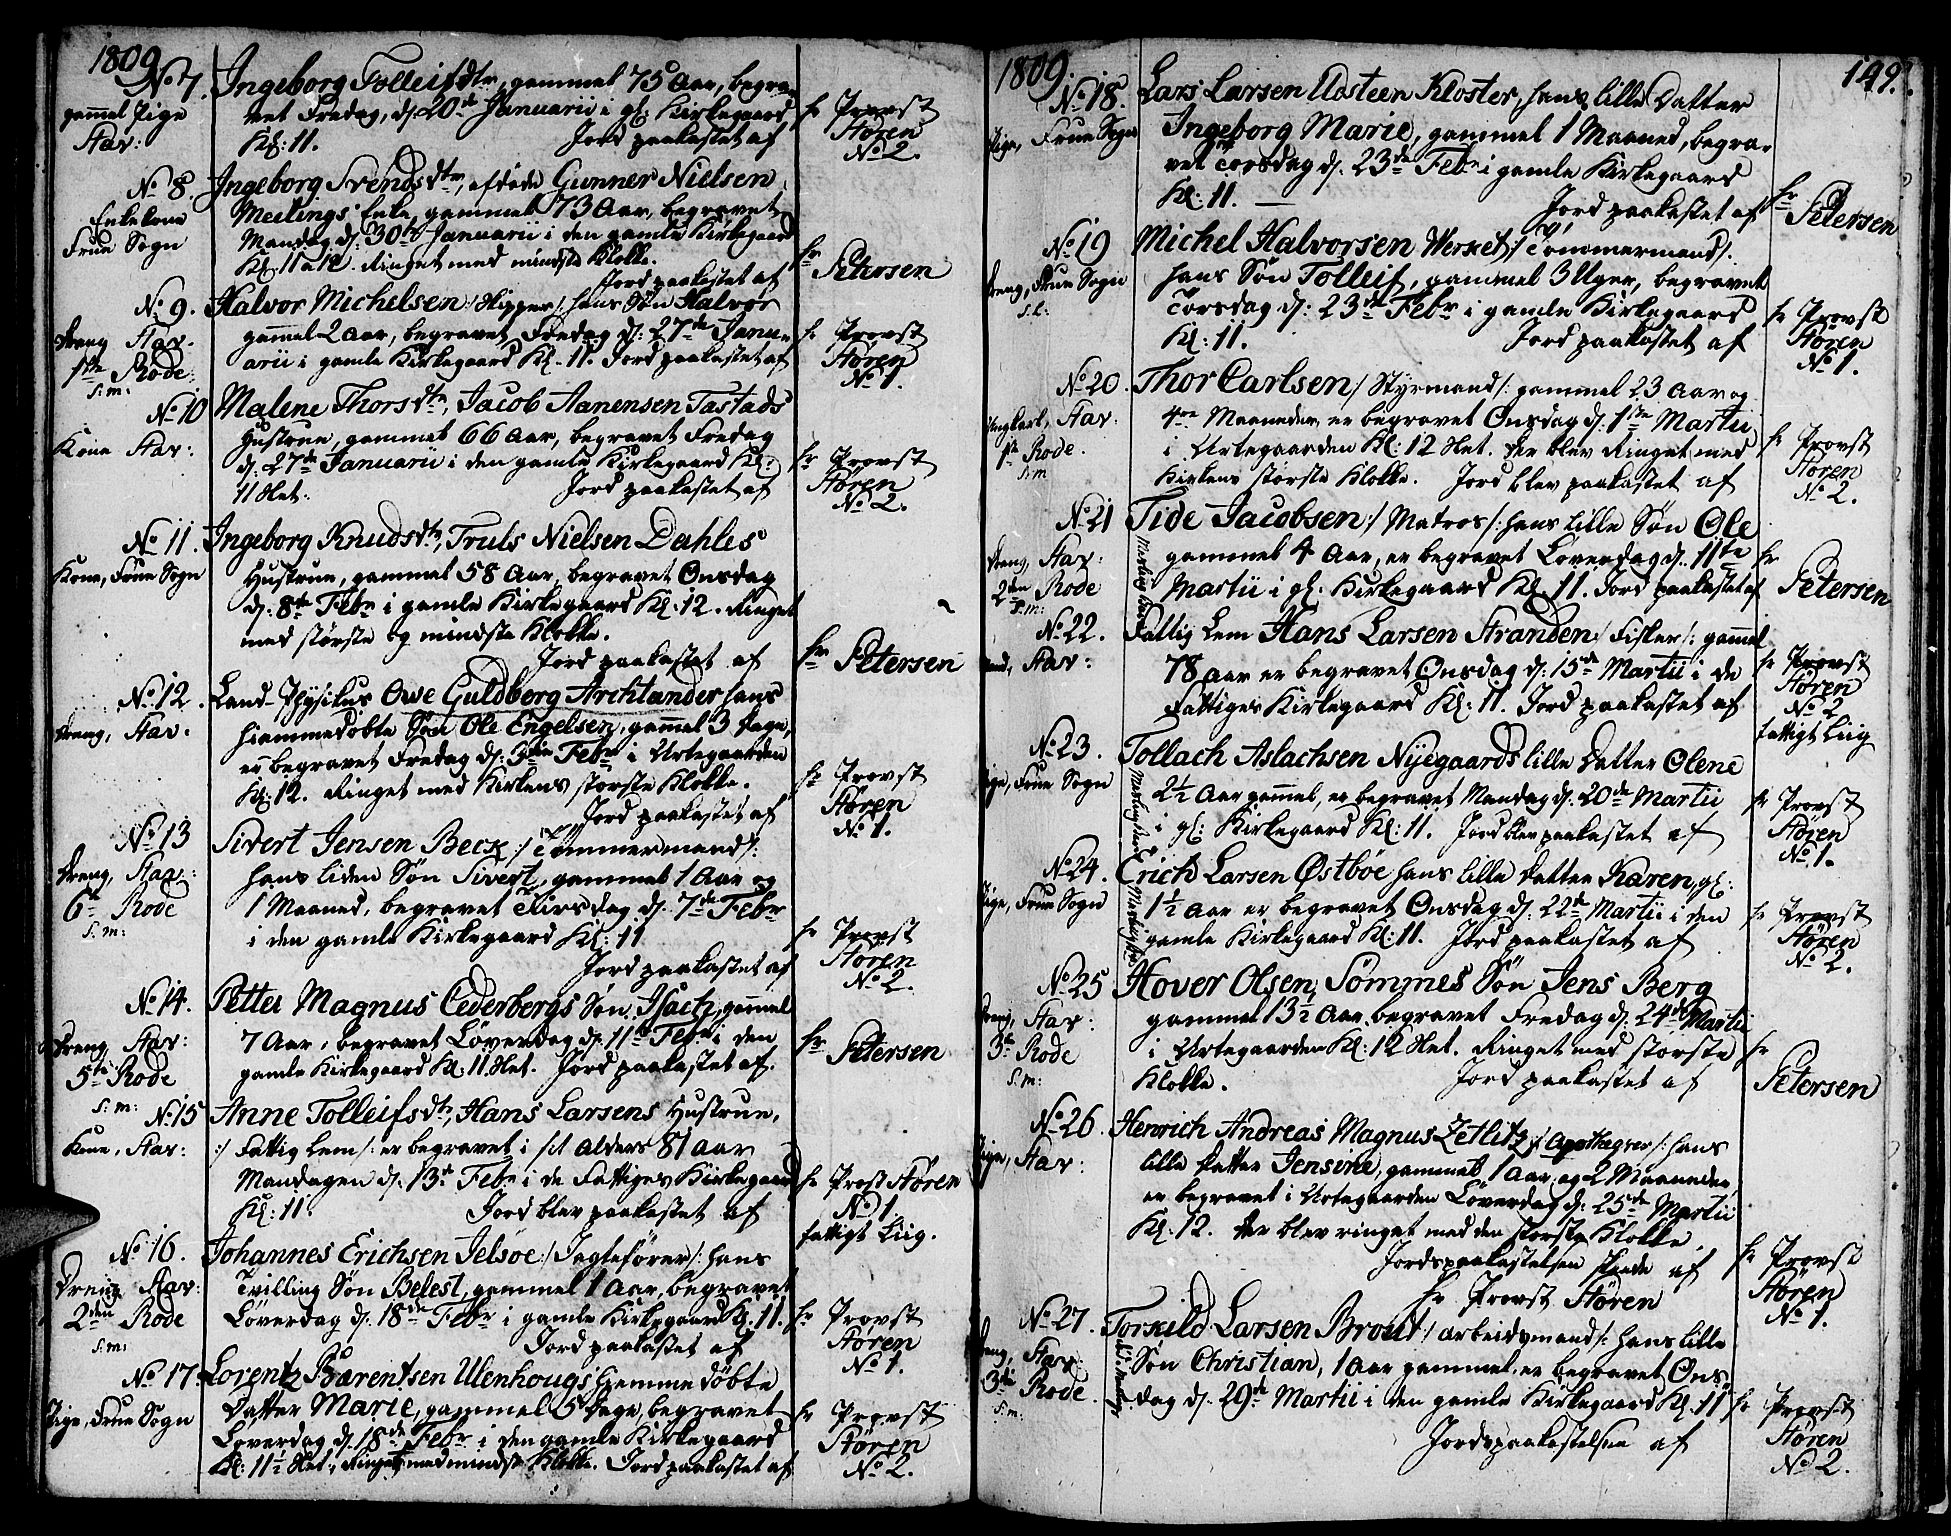 1809
No 7. Ingeborg Tolleifsdtr, gammel 75 Aar, begra-
gammel Pige vet Fredag, d. 20de Januarii i gl: Kirkegaard hr Provst
Stav: Kl: 11. Jord paakastet af Støren
No 2.
No 8. Ingeborg Svendsdtr, afdøde Gunner Nielsen
Enkekone Meilings Enke, gammel 73 Aar, begravet
Frue Sogn Mandag d: 30te Januarii i den gamle Kirkegaard
Kl: 11 a 12. Ringet med mindste Klokke. hr
Jord paakastet af Petersen
No 9. Halvor Michelsen /: Skipper :/ hans Søn Halvor
Dreng Stav. gammel 2 Aar, begravet Fredag d: 27de Janu- hr Provst
1ste Rode arii i gamle Kirkegaard Kl: 11. Jord paakastet af Støren
S: m: No 1.
No 10 Malene Thorsdtr, Jacob Aanensen Tastads
Kone Stav: Hustrue, gammel 66 Aar, begravet Fredag
d: 27de Januarii i den gamle Kirkegaard Kl: hr Provst
11 Slet. Jord paakastet af Støren
No 2.
No 11. Ingeborg Knudsdtr, Truls Nielsen Dahles
Kone, Frue Sogn Hustrue, gammel 58 Aar, begravet Onsdag
d: 8de Febr i gamle Kirkegaard Kl: 12. Ringet
med største og mindste Klokke.
Jord paakastet af hr Petersen
No 12. Land-Physikus Owe Guldberg Archtander hans
Dreng, Stav. hiemmedøbte Søn Ole Engelsen, gammel 3 Dage,
er begravet Fredag d: 3die Febr i Urtegaarden
Kl: 12. Ringet med Kirkens største Klokke. hr Provst
Jord paakastet af Støren
No 1.
No 13 Sivert Jensen Beck /: Tømmermand :/
Dreng, Stav: hans liden Søn Sivert, gammel 1 Aar og
6te Rode 1 Maaned, begravet Tirsdag d: 7de Febr
S: m: i den gamle Kirkegaard Kl: 11 hr Provst
Jord paakastet af Støren
No 2.
No 14. Petter Magnus Cederbergs Søn, Isach, gammel
Dreng Stav: 7 Aar, begravet Løverdag d: 11te Febr i den hr
5te Rode gamle Kirkegaard Kl: 11 Slet. Jord paakastet af. Petersen
S: m:
No 15 Anne Tolleifsdtr, Hans Larsens Hustrue,
Kone, Stav: /: Fattig Lem :/ er begravet i sit Alders 81 Aar
Mandagen d: 13de Febr i de Fattiges Kirkegaard hr Prost Støren
Kl: 11. Jord blev paakastet af No 1.
fattigt Liig.
No 16. Johannes Erichsen Jelsøe /: Jagtefører :/ hans
Dreng Stav: Tvilling Søn Belest, gammel 1 Aar, begravet
2den Rode Løverdag d: 18de Febr i gamle Kirkegaard Kl: 11. hr Provst
S: m: Jord paakastet af Støren
No 1.
No 17. Lorentz Bærentsen Ulenhougs hiemmedøbte
Pige, Frue Sogn Datter Marie, gammel 5 Dage, begravet hr Provst
Løverdag d: 18de Febr i den gamle Kirkegaard Støren
Kl: 11½ Slet, Ringet med mindste Klokke. Jord paakastet af No 2.
1809. 149.
No 18. Lars Larsen Udsteen Kloster, hans lille Datter
Pige, Frue Sogn Ingeborg Marie, gammel 1 Maaned, begra-
vet Torsdag d: 23de Febr i gamle Kirkegaard
Kl: 11. — Jord paakastet af hr Petersen
No 19 Michel Halvorsen Werset, /: Tømmermand :/
Dreng, Frue Sogn hans Søn Tolleif, gammel 3 Uger, begravet
Torsdag d: 23de Febr i gamle Kirkegaard hr Provst
Kl: 11. Jord paakastet af Støren
No 1.
No 20. Thor Carlsen /: Styrmand :/ gammel 23 Aar og
Ungkarl, Stav: 4re Maaneder, er begravet Onsdag d: 1ste Martii
1ste Rode. i Urtegaarden Kl: 12 Slet. Der blev Ringet med hr Provst
S: m Kirkens største Klokke. Jord blev paakastet af Støren
No 2.
No 21 Tide Jacobsen /: Matros :/ hans lille Søn Ole
Dreng, Stav: gammel 4 Aar, er begravet Løverdag d: 11te hr
2den Rode Martii i gl: Kirkegaard Kl: 11. Jord paakastet af Petersen
S: m:
No 22. Fattig Lem Hans Larsen Stranden /: Fisker :/ gammel
Mand, Stav: 78 Aar er begravet Onsdag d: 15de Martii i de hr Provst
Fattiges Kirkegaard Kl: 11. Jord paakastet af Støren
No 2
fattigt Liig
No 23. Tollach Aslachsen Nyegaards lille Datter Olene
Pige, Frue Sogn 2½ Aar gammel, er begravet Mandag d: 20de Martii hr Provst
i gl: Kirkegaard Kl: 11. Jord blev paakastet af Støren
No 1.
No 24. Erich Larsen Østbøe hans lille Datter Karen, gl:
Pige, Frue Sogn 1½ Aar er begravet Onsdag d: 22de Martii i den hr Provst
gamle Kirkegaard Kl: 11. Jord paakastet af Støren
No 2.
No 25 Hover Olsen Sømmes Søn Jens Berg
Dreng, Stav: gammel 13½ Aar, begravet Fredag d: 24de Martii
3de Rode i Urtegaarden Kl: 12 Slet. Ringet med største hr
S: m: Klokke. Jord paakastet af Petersen
No 26. Henrich Andreas Magnus Zetlitz /: Apothegrer :/ hans
Pige, Stav: lille Datter Jensine, gammel 1 Aar, og 2 Maaneder
er begravet i Urtegaarden Løverdag d: 25de Martii
Kl: 12. Der blev ringet med den største Klokke.
Jordspaakastelsen skeede af hr Provst
hr Provst Støren Støren
No 1.
No 27. Torkild Larsen Brout /: arbeidsmand :/ hans lille
Dreng, Stav: Søn Christian, 1 Aar gammel, er begravet Ons-
3die Rode dag d: 29de Martii i den gamle Kirkegaard Kl: 11 hr Provst
S: m: Jordspaakastelsen af Støren
No 2.